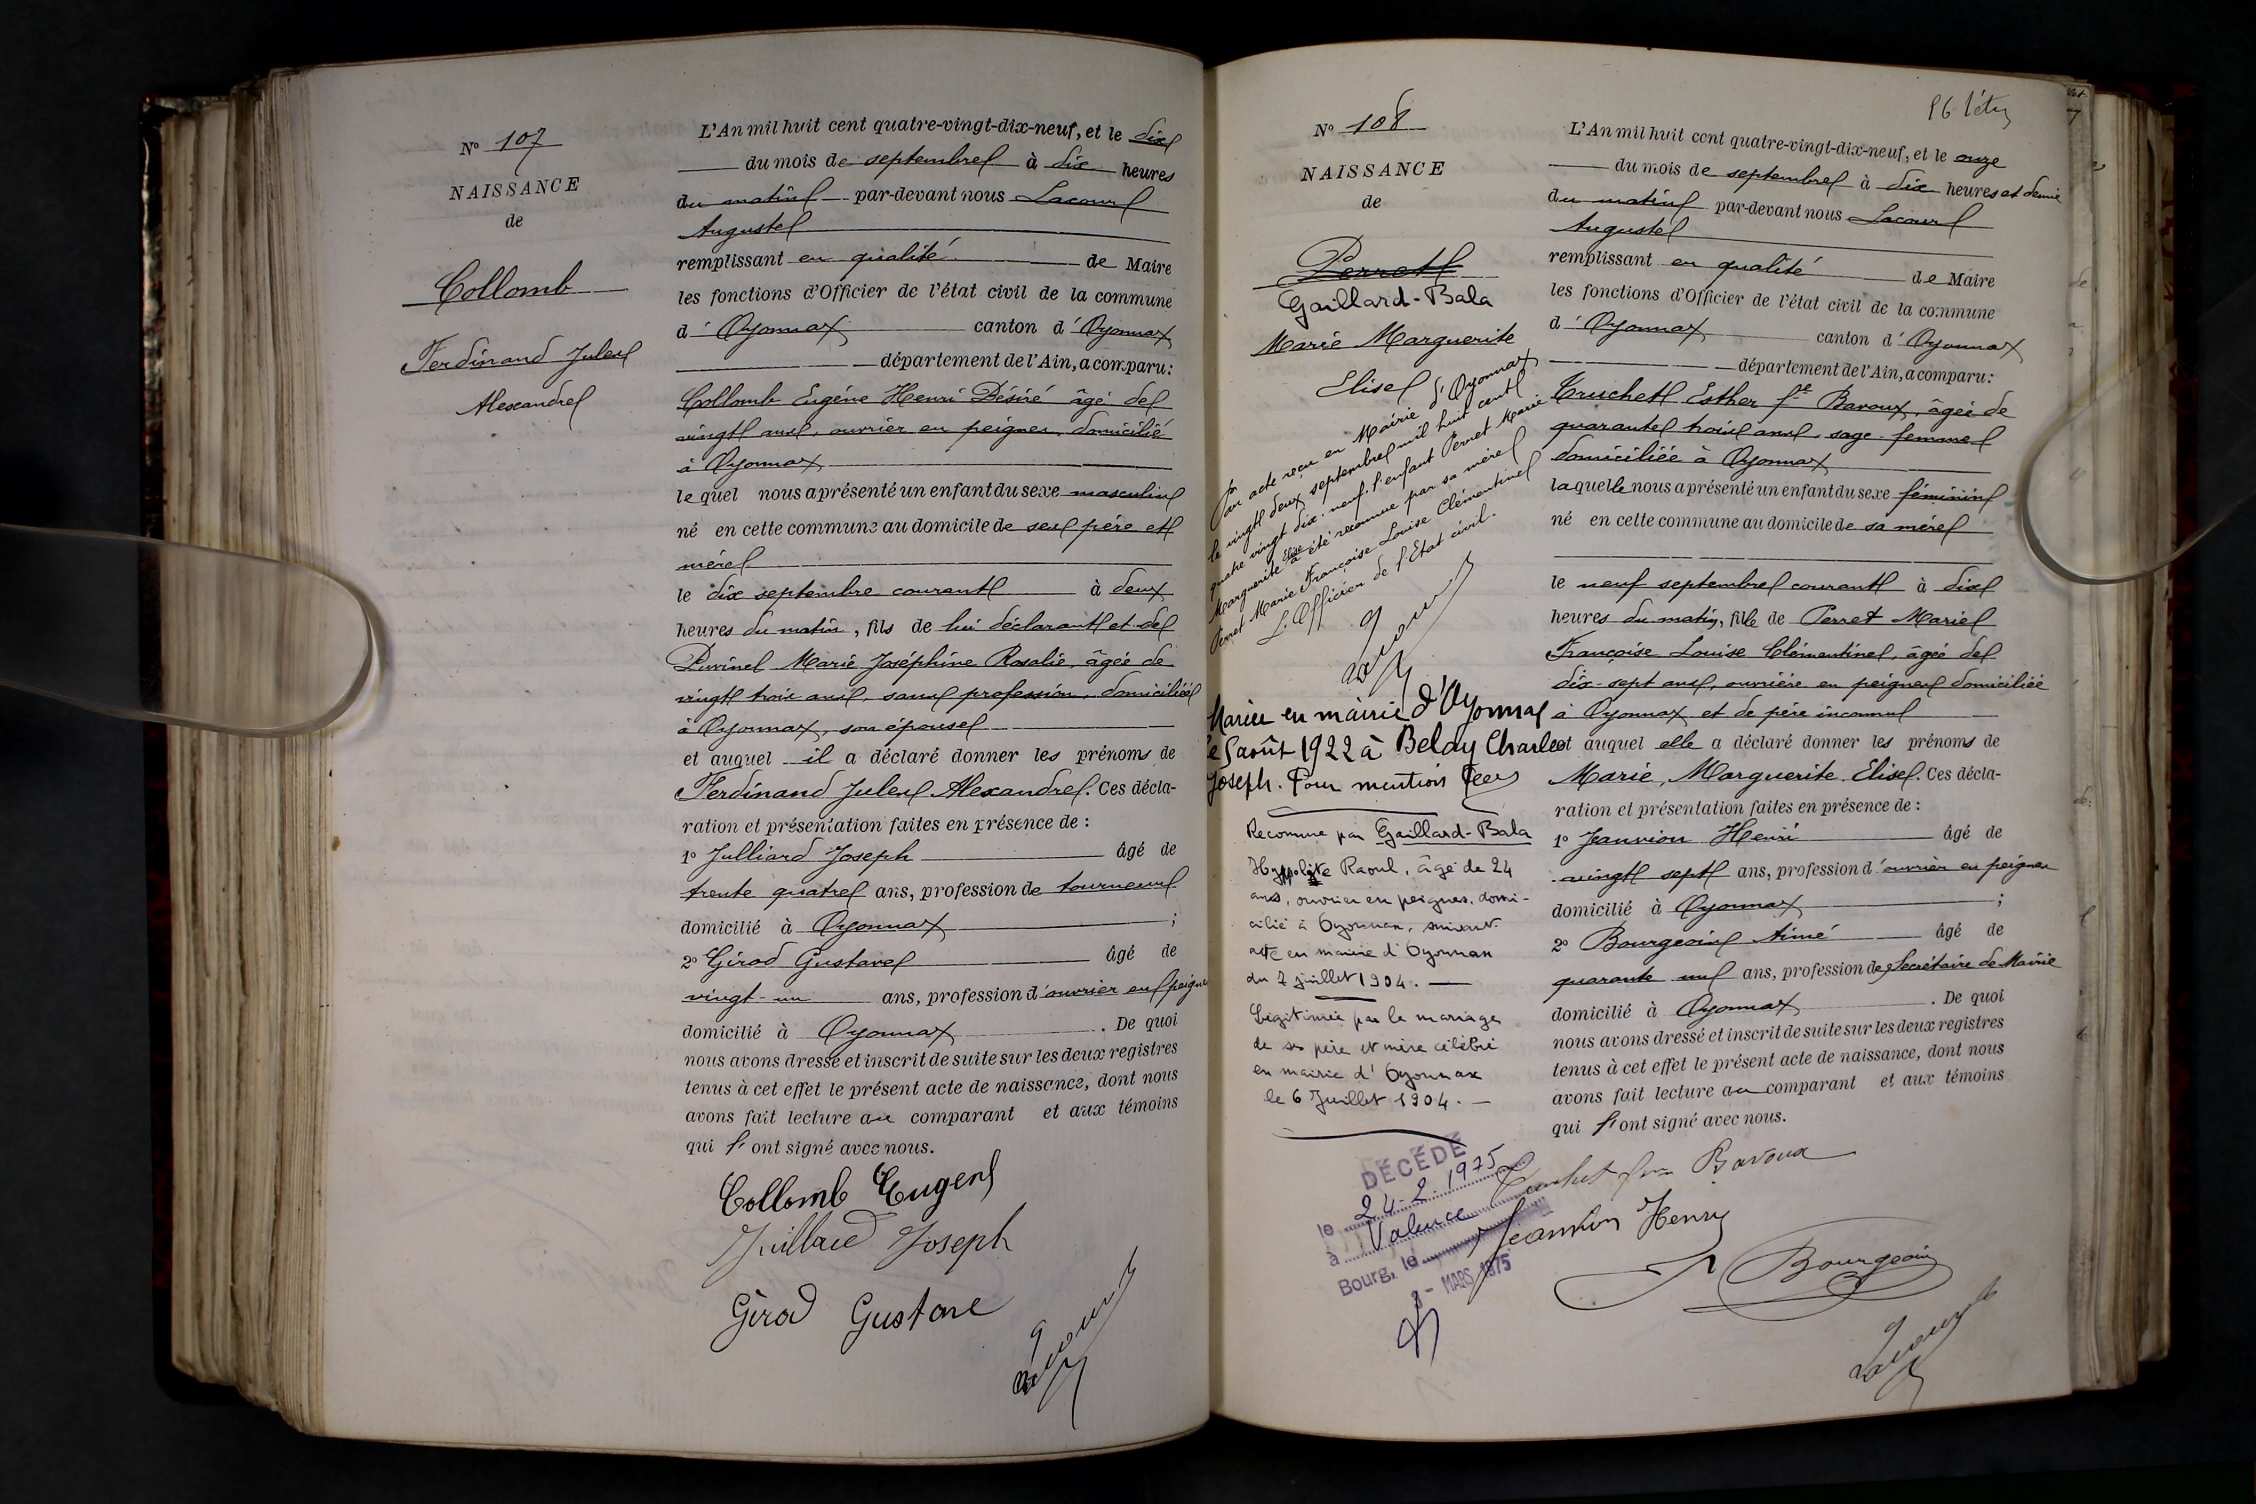 N° 107
NAISSANCE
de
Collomb
Ferdinand Jules
Alexandre
L'An mil huit cent quatre-vingt-dix-neuf, et le dix
du mois de septembre à dix heures
du matin par-devant nous Lacour
Auguste
remplissant en qualité de Maire
les fonctions d'Officier de l'état civil de la commune
d'Oyonnax canton d'Oyonnax
département de l'Ain, a comparu:
Collomb Eugène Henri Désiré âgé de
vingt ans, ouvrier en peignes, domicilié
à Oyonnax
le quel nous a présenté un enfant du sexe masculin
né en cette commune au domicile de ses père et
mère
le dix septembre courant à deux
heures du matin, fils de lui déclarant et de
Marie Joséphine Rosalie, âgée de
vingt trois ans, sans profession, domiciliée
à Oyonnax, son épouse
et auquel il a déclaré donner les prénoms de
Ferdinand Jules Alexandre. Ces décla-
ration et présentation faites en présence de :
1° Julliard Joseph âgé de
trente quatre ans, profession de tourneur
domicilié à Oyonnax ;
2° Girod Gustave âgé de
vingt-un ans, profession d'ouvrier en peignes
domicilié à Oyonnax . De quoi
nous avons dressé et inscrit de suite sur les deux registres
tenus à cet effet le présent acte de naissance, dont nous
avons fait lecture au comparant et aux témoins
qui l'ont signé avec nous.
Collomb Eugene
Juillard Joseph
Girod Gustave
A Lacour
N° 108
NAISSANCE
de
Perret
Gaillard-Bala
Marie Marguerite
Elise
Par acte reçu en Mairie d'Oyonnax
le vingt deux septembre mil huit cent
quatre vingt dix-neuf, l'enfant Perret Marie
Marguerite Elise a été reconnue par sa mère
Perret Marie Françoise Louise Clémentine
L'Officier de l'Etat civil.
A Lacour
Mariée en mairie d'Oyonnax
le 5 août 1922 à Belay Charles
Joseph. Pour mention
Reconnue par Gaillard-Bala
Hyppolite Raoul, âgé de 24
ans, ouvrier en peignes, domi-
cilié à Oyonnax, suivant
acte en mairie d'Oyonnax
du 2 juillet 1904. —
Légitimée par le mariage
de ses père et mère célébré
en mairie d'Oyonnax
le 6 Juillet 1904. —
DÉCÉDÉ
le 24-2-1975
à Valence
Bourg, le 3 - MARS 1975
L'An mil huit cent quatre-vingt-dix-neuf, et le onze
du mois de septembre à dix heures et demie
du matin par-devant nous Lacour
Auguste
remplissant en qualité de Maire
les fonctions d'Officier de l'état civil de la commune
d'Oyonnax canton d'Oyonnax
département de l'Ain, a comparu:
Truchet Esther fe Bavoux, âgée de
quarante trois ans, sage-femme
domiciliée à Oyonnax
laquelle nous a présenté un enfant du sexe féminin
né en cette commune au domicile de sa mère
le neuf septembre courant à dix
heures du matin, fille de Perret Marie
Françoise Louise Clémentine, âgée de
dix-sept ans, ouvrière en peignes domiciliée
à Oyonnax et de père inconnu
et auquel elle a déclaré donner les prénoms de
Marie, Marguerite Elise. Ces décla-
ration et présentation faites en présence de :
1° Jeanvion Henri âgé de
vingt sept ans, profession d'ouvrier en peignes
domicilié à Oyonnax ;
2° Bourgeois Aimé âgé de
quarante un ans, profession de Secrétaire de Mairie
domicilié à Oyonnax . De quoi
nous avons dressé et inscrit de suite sur les deux registres
tenus à cet effet le présent acte de naissance, dont nous
avons fait lecture au comparant et aux témoins
qui l'ont signé avec nous.
Truchet fme Bavoux
Jeanvion Henry
Bourgeois
A Lacour